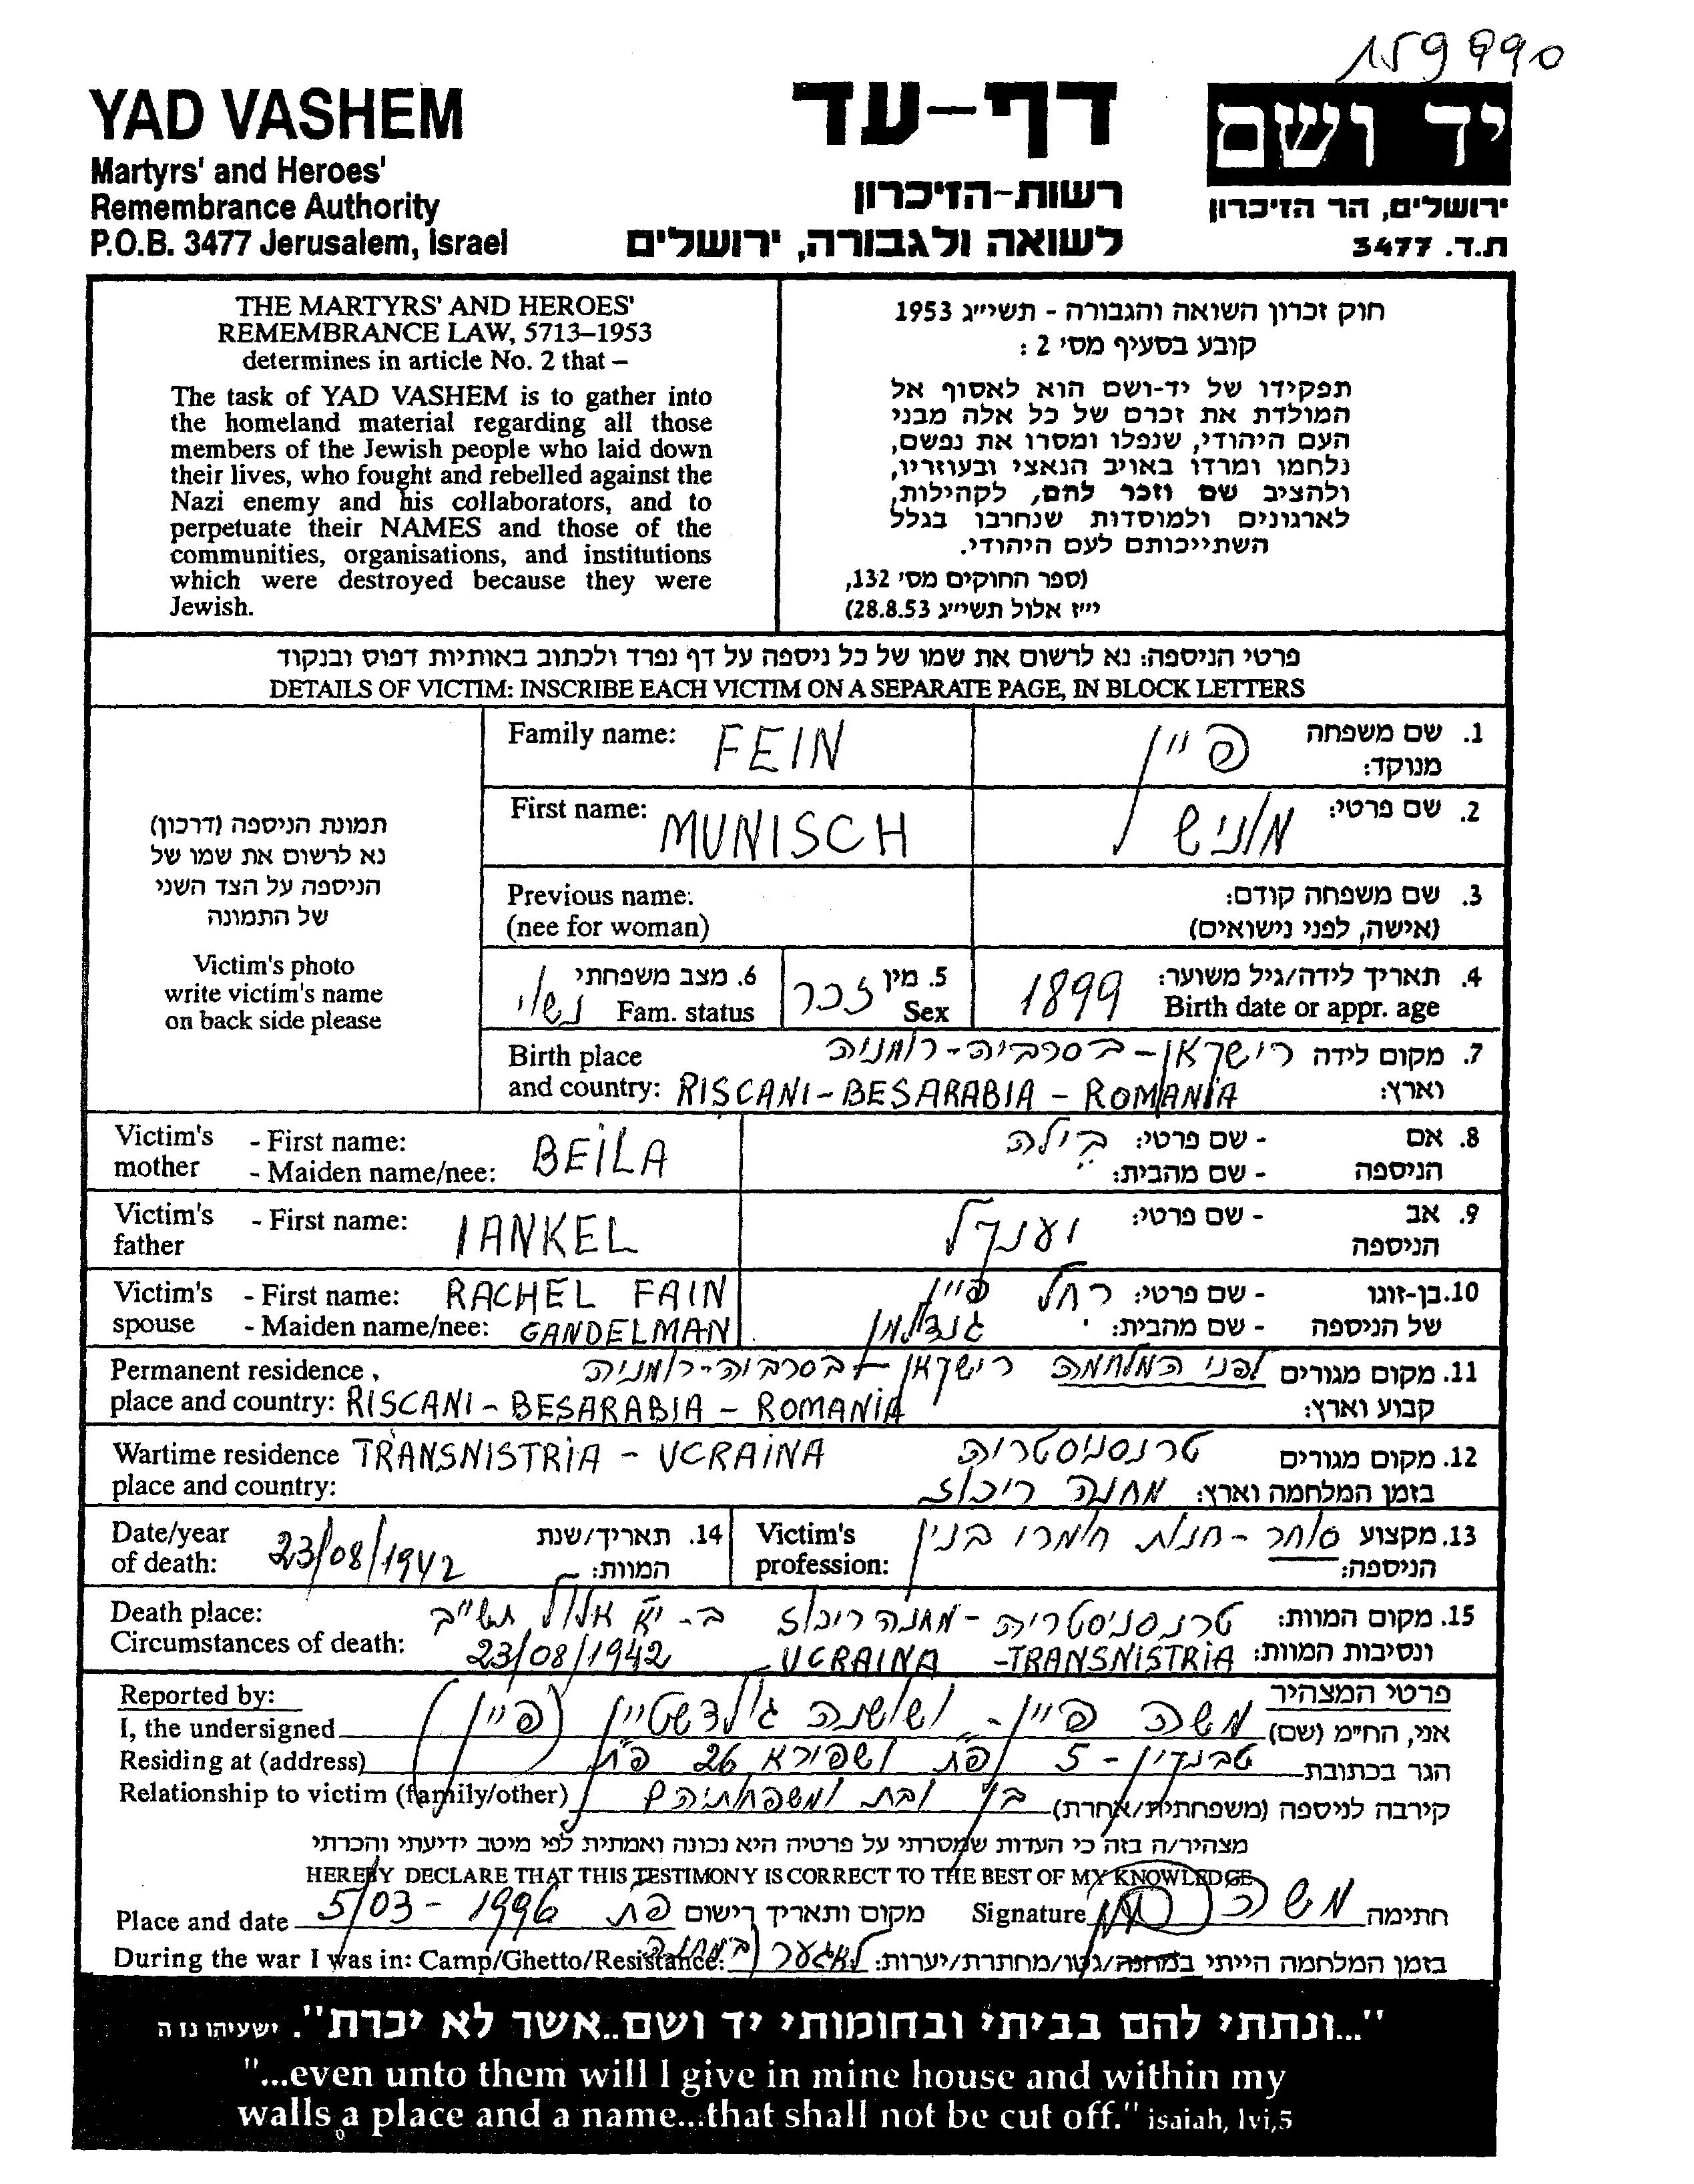 159990
YAD VASHEM
Martyrs' and Heroes'
Remembrance Authority
P.O.B. 3477 Jerusalem, Israel
דף-עד
רשות-הזיכרון
לשואה ולגבורה, ירושלים
יד ושם
ירושלים, הר הזיכרון
ת.ד. 3477
THE MARTYRS' AND HEROES'
REMEMBRANCE LAW, 5713–1953
determines in article No. 2 that –
The task of YAD VASHEM is to gather into
the homeland material regarding all those
members of the Jewish people who laid down
their lives, who fought and rebelled against the
Nazi enemy and his collaborators, and to
perpetuate their NAMES and those of the
communities, organisations, and institutions
which were destroyed because they were
Jewish.
חוק זכרון השואה והגבורה - תשי״ג 1953
קובע בסעיף מס׳ 2 :
תפקידו של יד-ושם הוא לאסוף אל
המולדת את זכרם של כל אלה מבני
העם היהודי, שנפלו ומסרו את נפשם,
נלחמו ומרדו באויב הנאצי ובעוזריו,
ולהציב שם וזכר להם, לקהילות,
לארגונים ולמוסדות שנחרבו בגלל
השתייכותם לעם היהודי.
(ספר החוקים מס׳ 132,
י״ז אלול תשי״ג 28.8.53)
פרטי הניספה: נא לרשום את שמו של כל ניספה על דף נפרד ולכתוב באותיות דפוס ובנקוד
DETAILS OF VICTIM: INSCRIBE EACH VICTIM ON A SEPARATE PAGE, IN BLOCK LETTERS
תמונת הניספה (דרכון)
נא לרשום את שמו של
הניספה על הצד השני
של התמונה
Victim's photo
write victim's name
on back side please
Family name: FEIN
1. שם משפחה פיין
מנוקד:
First name: MUNISCH
2. שם פרטי: מוניש
Previous name:
(nee for woman)
3. שם משפחה קודם:
(אישה, לפני נישואים)
4. תאריך לידה/גיל משוער: 1899
Birth date or appr. age
5. מין זכר
Sex
6. מצב משפחתי נשוי
Fam. status
7. מקום לידה רישקאן - בסרביה - רומניה
וארץ:
Birth place
and country: RISCANI - BESARABIA - ROMANIA
Victim's mother - First name: BEILA
- Maiden name/nee:
8. אם הניספה - שם פרטי: ביילה
- שם מהבית:
Victim's father - First name: IANKEL
9. אב הניספה - שם פרטי: יענקל
Victim's spouse - First name: RACHEL FAIN
- Maiden name/nee: GANDELMAN
10. בן-זוגו - שם פרטי: רחל פיין
של הניספה - שם מהבית: גנדלמן
11. מקום מגורים לפני המלחמה רישקאן - בסרביה - רומניה
קבוע וארץ:
Permanent residence
place and country: RISCANI - BESARABIA - ROMANIA
Wartime residence TRANSNISTRIA - UCRAINA
place and country:
12. מקום מגורים טרנסניסטריה
בזמן המלחמה וארץ: מחנה
13. מקצוע סוחר - חנות חומרי בנין
הניספה:
Victim's
profession:
14. תאריך/שנת
המוות:
Date/year
of death: 23/08/1942
15. מקום המוות: טרנסניסטריה - מחנה ב- י׳ אלול תש״ב
ונסיבות המוות: TRANSNISTRIA - UCRAINA 23/08/1942
Death place:
Circumstances of death:
פרטי המצהיר
Reported by:
אני, הח״מ (שם) משה פיין - ושושנה גולדשטיין (פיין)
I, the undersigned
הגר בכתובת טבנקין - 5 פת ושפירא 26 פ״ת
Residing at (address)
קירבה לניספה (משפחתית/אחרת) בן ובת ומשפחותיהם
Relationship to victim (family/other)
מצהיר/ה בזה כי העדות שמסרתי על פרטיה היא נכונה ואמתית לפי מיטב ידיעתי והכרתי
HEREBY DECLARE THAT THIS TESTIMONY IS CORRECT TO THE BEST OF MY KNOWLEDGE
Place and date 5/03 - 1996 מקום ותאריך רישום פת
Signature משה חתימה
During the war I was in: Camp/Ghetto/Resistance:
בזמן המלחמה הייתי במחנה/גטו/מחתרת/יערות: לאגער (במחנה
"...ונתתי להם בביתי ובחומותי יד ושם..אשר לא יכרת". ישעיהו נו ה
"...even unto them will I give in mine house and within my
walls a place and a name...that shall not be cut off." isaiah, lvi,5